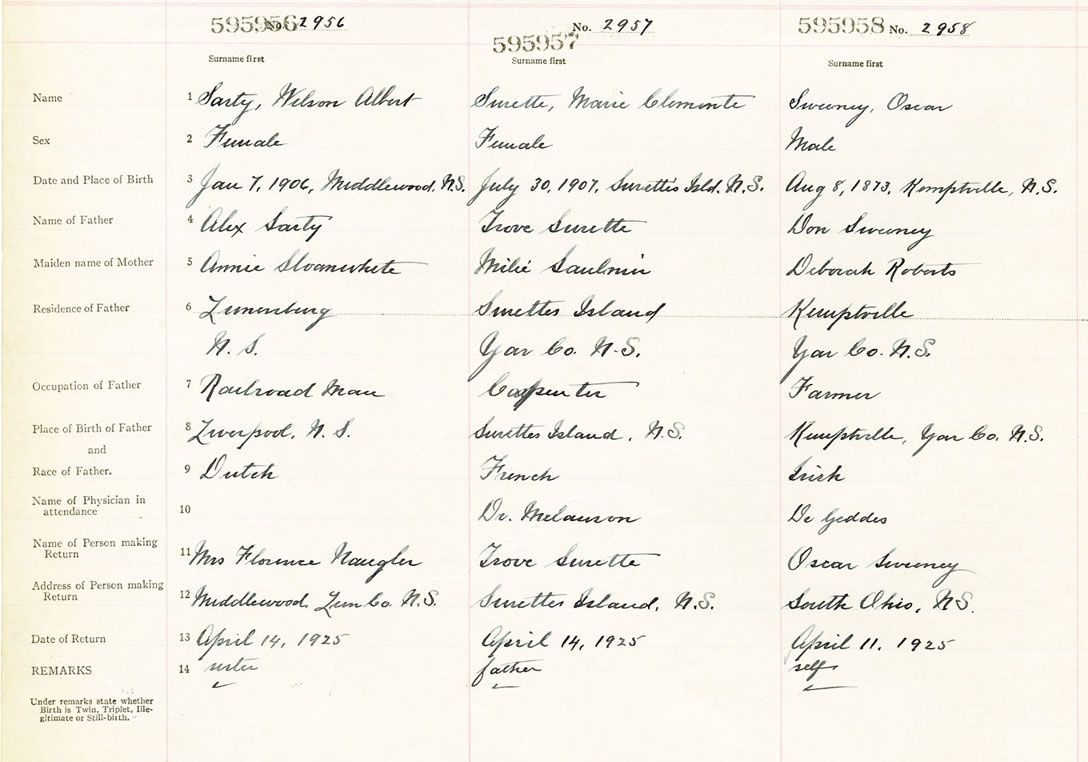 595956 No. 2956 595957 No. 2957 595958 No. 2958
Surname first Surname first Surname first
Name 1 Sarty, Wilson Albert Surette, Marie Clemente Sweeney, Oscar
Sex 2 Female Female Male
Date and Place of Birth 3 Jan 7, 1906, Middlewood, N.S. July 30, 1907, Surette's Isld. N.S. Aug 8, 1873, Kemptville, N.S.
Name of Father 4 Alex Sarty Trove Surette Don Sweeney
Maiden name of Mother 5 Annie Sloanwhite Milie Saulnier Deborah Roberts
Residence of Father 6 Lunenburg Surettes Island Kemptville
N. S. Yar Co. N.S. Yar Co. N.S.
Occupation of Father 7 Railroad Man Carpenter Farmer
Place of Birth of Father 8 Liverpool, N. S. Surettes Island, N.S. Kemptville, Yar Co. N.S.
and
Race of Father. 9 Dutch French Irish
Name of Physician in
attendance 10 Dr. Melanson De Geddes
Name of Person making
Return 11 Mrs Florence Naugler Trove Surette Oscar Sweeney
Address of Person making
Return 12 Middlewood, Lun Co. N.S. Surettes Island, N.S. South Ohio, N.S.
Date of Return 13 April 14, 1925 April 14, 1925 April 11, 1925
REMARKS 14 sister father self
Under remarks state whether
Birth is Twin, Triplet, Ille-
gitimate or Still-birth.